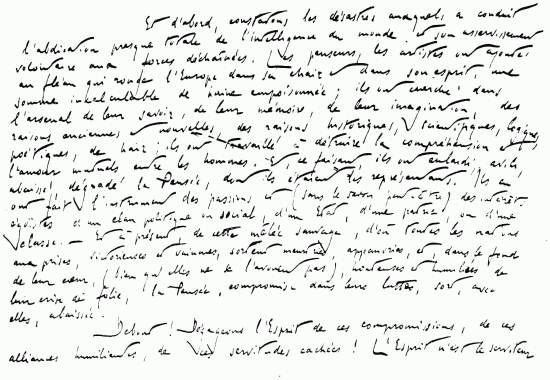 Et d'abord, constatons les désastres auxquels a conduit
l'abdication presque totale de l'intelligence du monde et son asservissement
volontaire aux forces déchaînées. Les penseurs, les artistes ont ajouté
au fléau qui ronge l'Europe dans sa chair et dans son esprit une
somme incalculable de haine empoisonnée ; ils ont cherché dans
l'arsenal de leur savoir, de leur mémoire, de leur imagination, des
raisons anciennes et nouvelles, des raisons historiques, scientifiques, logiques,
poétiques, de haïr ; ils ont travaillé à détruire la compréhension et
l'amour mutuels entre les hommes. Et ce faisant, ils ont enlaidi, avili,
abaissé, dégradé la Pensée, dont ils étaient les représentants. Ils en
ont fait l'instrument des passions et (sans le savoir peut-être) des intérêts
égoïstes d'un clan politique ou social, d'un Etat, d'une patrie ou d'une
classe. — Et à présent de cette mêlée sauvage, d'où toutes les nations
aux prises, victorieuses et vaincues, sortent meurtries, appauvries, et, dans le fond
de leur cœur, (bien qu'elles ne se l'avouent pas), honteuses et humiliées de
leur crise de folie, la Pensée, compromise dans leurs luttes, sort, avec
elles, abaissée.
Debout ! Dégageons l'Esprit de ces compromissions, de ces
alliances humiliantes, de ces servitudes cachées ! L'Esprit n'est le serviteur